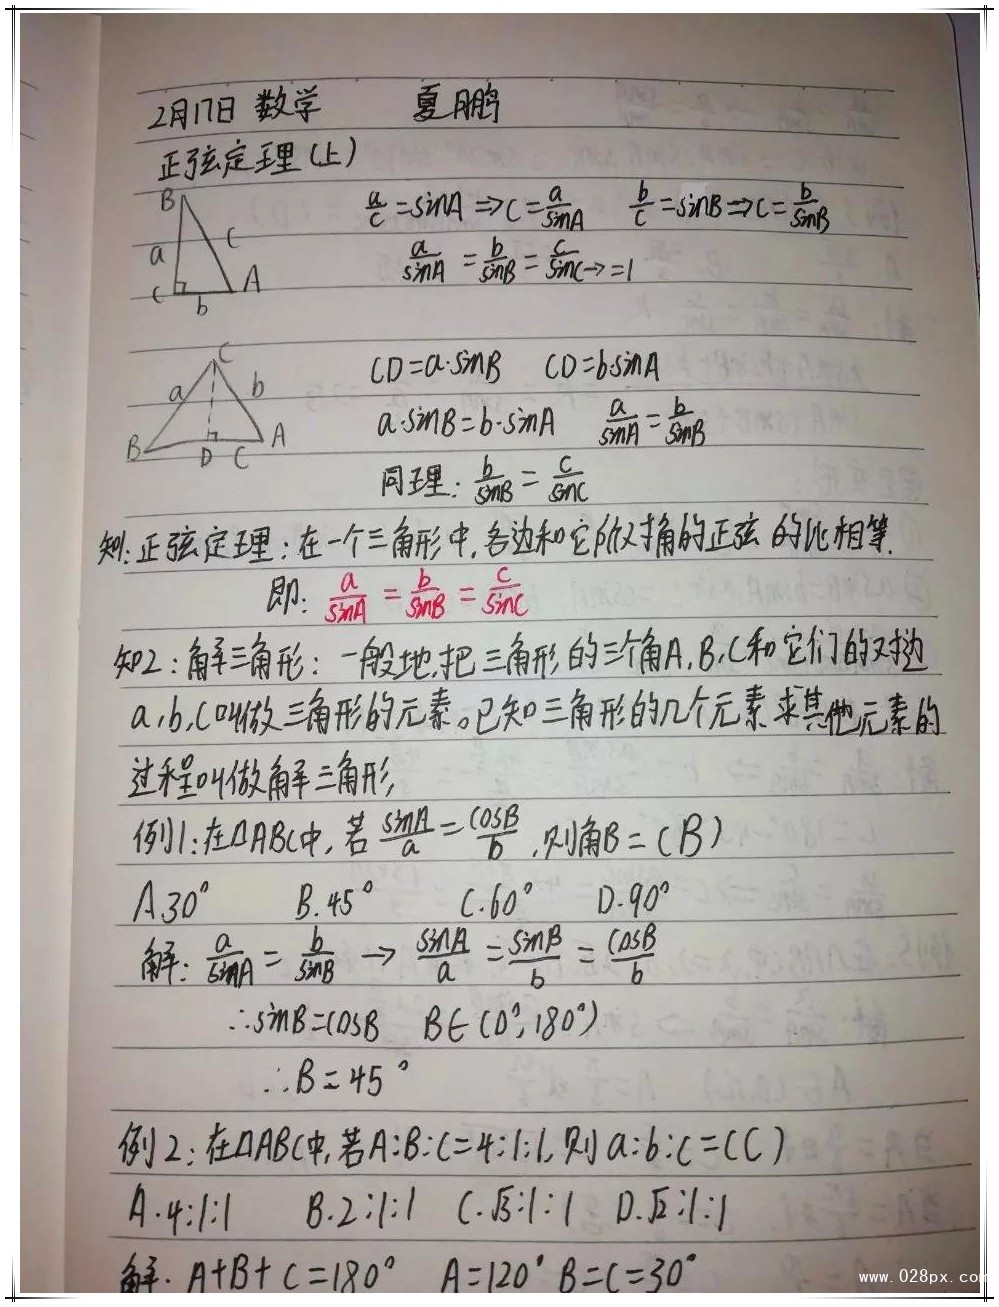 2月17日 数学 夏鹏
正弦定理(上)
B
a c
C b A
a/c=sinA⇒c=a/sinA b/c=sinB⇒c=b/sinB
a/sinA=b/sinB=c/sinC→=1
C
a b
B D c A
CD=a·sinB CD=b·sinA
a·sinB=b·sinA a/sinA=b/sinB
同理:b/sinB=c/sinC
知1:正弦定理:在一个三角形中,各边和它所对角的正弦的比相等.
即:a/sinA=b/sinB=c/sinC
知2:解三角形:一般地,把三角形的三个角A,B,C和它们的对边
a,b,c叫做三角形的元素。已知三角形的几个元素求其他元素的
过程叫做解三角形
例1:在△ABC中,若sinA/a=cosB/b,则角B=(B)
A.30° B.45° C.60° D.90°
解:a/sinA=b/sinB→sinA/a=sinB/b=cosB/b
∴sinB=cosB B∈(0°,180°)
∴B=45°
例2:在△ABC中,若A:B:C=4:1:1,则a:b:c=(C)
A.4:1:1 B.2:1:1 C.√3:1:1 D.√2:1:1
解.A+B+C=180° A=120° B=C=30°
www.028px.com